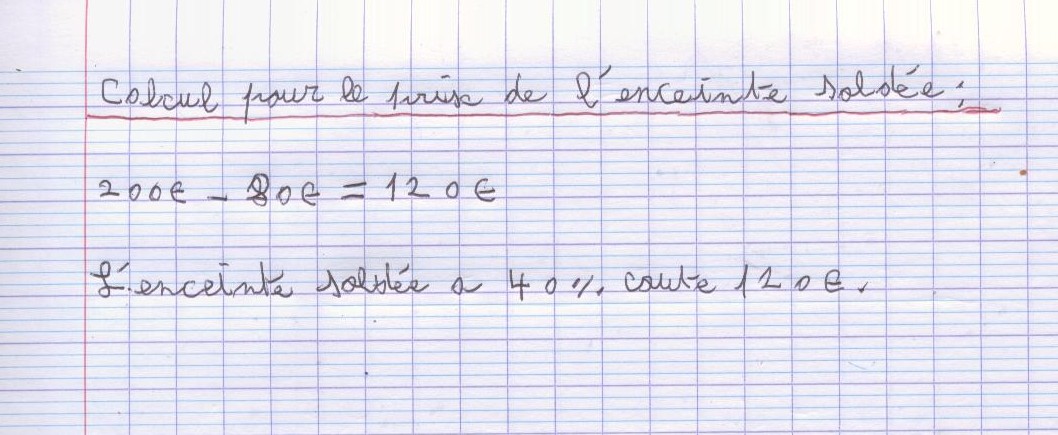 Calcul pour le prix de l'enceinte soldée :
200€ - 80€ = 120€
L'enceinte soldée a 40% coute 120€.